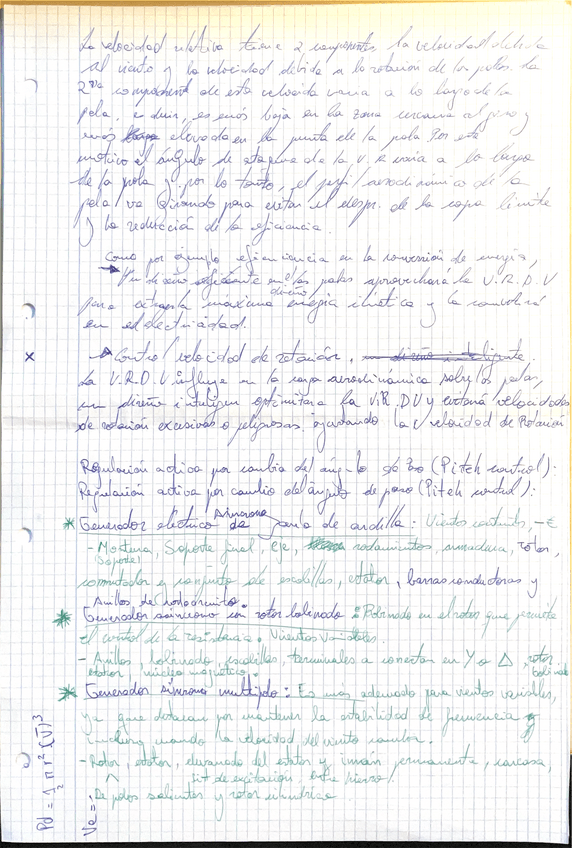 La velocidad relativa tiene 2 componentes la velocidad debida
al viento y la velocidad debida a la rotación de las palas. La
2da componente de esta velocidad varia a lo largo de la
pala, es decir, es más baja en la zona cercana al y
más elevada en la punta de la pala. Por este
motivo el ángulo de ataque de la V.R varia a lo largo
de la pala y, por lo tanto, el perfil aerodinámico de la
pala va girando para evitar el despr. de la capa límite
y la reducción de la eficiencia.
Como por ejemplo eficiencia en la conversión de energía,
Un diseño eficiente en las palas aprovechará la V.R.D.V
diseño
para extraer la máxima energía cinética y la convertirá
en electricidad.
Control velocidad de rotación,
La V.R.D.V influye en la carga aerodinámica sobre las palas,
un diseño inteligen optimitara la V.R.D.V y evitará velocidades
de rotación excesivas o peligrosas, ajustando la velocidad de Rotación
Regulación activa por cambio del ángulo de paso (Pitch control):
Regulación activa por cambio del ángulo de paso (Pitch control):
* Generador electrico de jaula de ardilla: Vientos constants, -€
- Montura, Soporte final, eje, rodamientos, armadura, rotor,
(Soporte)
conmutador y conjunto de escobillas, estator, barras conductoras y
Anillos de cortocircuito.
* Generador síncrono con rotor bobinado: Bobinado en el rotor que permite
el control de la resistencia. Vientos Variables.
- Anillos, bobinado, escobillas, terminales a conectar en Y o Δ, rotor bobinado
estator, núcleo magnético.
* Generador síncrono multiplo: Es más adecuado para vientos variables,
ya que destacan por mantener la estabilidad de frecuencia y
cuando la velocidad del viento cambia.
- Rotor, estator, devanado del estator y imán permanente, carcasa,
sist de excitación, entre hierro/
De polos salientes y rotor cilindrico.
Pd = 1/2 π r² (V)³